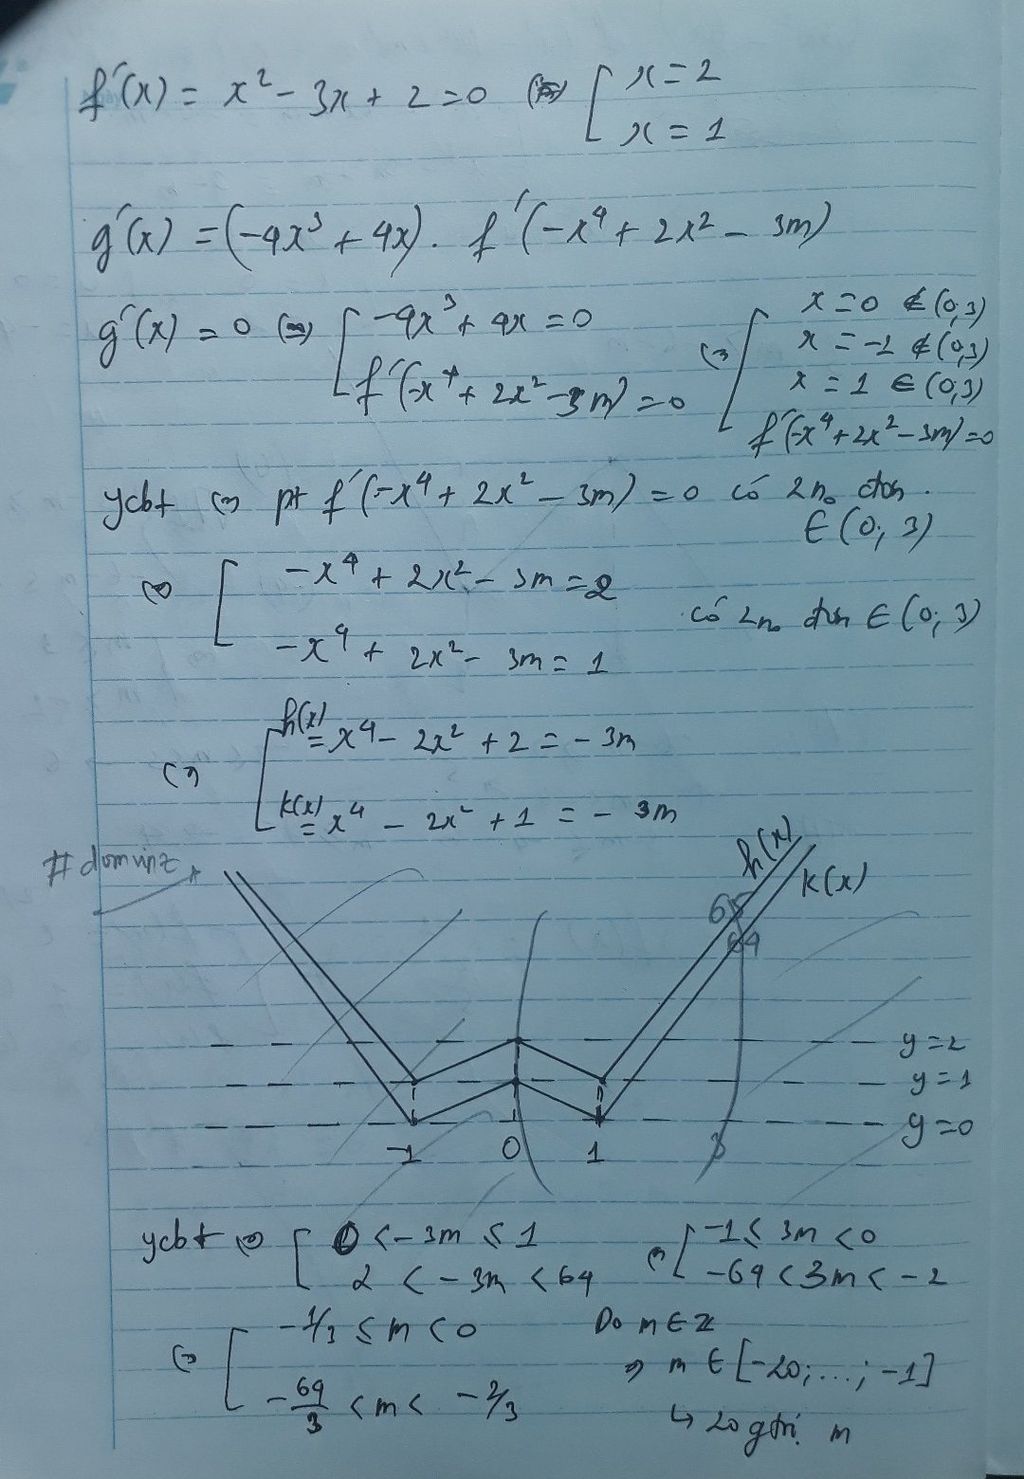 f'(x) = x² - 3x + 2 = 0 (=) [ x = 2
x = 1
g'(x) = (-4x³ + 4x). f'(-x⁴ + 2x² - 3m)
g'(x) = 0 (=) [ -4x³ + 4x = 0
f'(-x⁴ + 2x² - 3m) = 0
(=) [ x = 0 ∉ (0,3)
x = -1 ∉ (0,3)
x = 1 ∈ (0,3)
f'(-x⁴ + 2x² - 3m) = 0
ycbt (=) pt f'(-x⁴ + 2x² - 3m) = 0 có 2no đơn.
∈ (0; 3)
(=) [ -x⁴ + 2x² - 3m = 2
-x⁴ + 2x² - 3m = 1
có 2no đơn ∈ (0; 3)
(=) [ h(x) = x⁴ - 2x² + 2 = -3m
k(x) = x⁴ - 2x² + 1 = -3m
#dominz
h(x)
k(x)
65
64
y = 2
y = 1
y = 0
-1 0 1 3
ycbt (=) [ 0 < -3m ≤ 1 (=) [ -1 ≤ 3m < 0
2 < -3m < 64 -64 < 3m < -2
(=) [ -1/3 ≤ m < 0 Do m ∈ Z
-64/3 < m < -2/3 ⇒ m ∈ [-20; ...; -1]
↳ 20 gtrị m